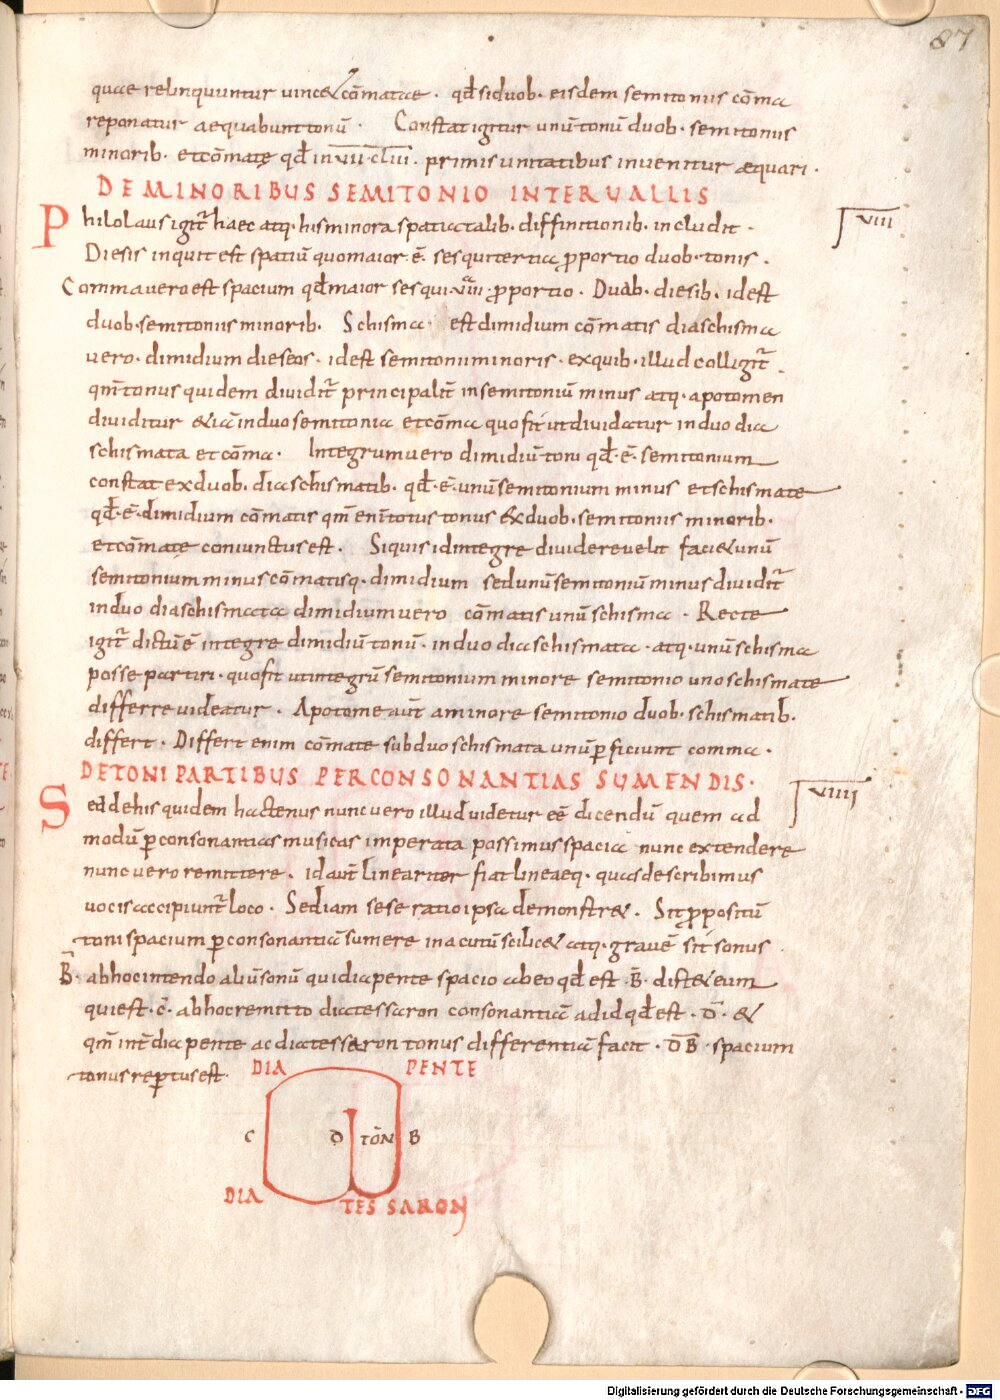 87
quae relinquuntur vincet cōmatae · qđ si duob· eisdem semitoniis cōma
reponatur aequabunt tonū · Constat igitur unū tonū duob· semitoniis
minorib· et cōmate qđ in VII·CLIII· primis unitatibus invenitur aequari ·
DE MINORIBUS SEMITONIO INTERVALLIS
VIII
Philolaus igit̄ haec atq· his minora spatia talib· diffinitionib· includit ·
Diesis inquit est spatiū quo maior ē· sesquitertia p̱portio duob· tonis ·
Comma vero est spacium qđ maior sesqui·VIIIa· p̱portio · Duab· diesib· id est
duob· semitoniis minorib· Schisma· est dimidium cōmatis diaschisma
vero· dimidium dieseos· id est semitonii minoris· ex quib· illud colligit̄ ·
qm̄ tonus quidem dividit̄ principalit̄ in semitoniū minus atq· apotomen
dividitur & iā in duo semitonia et cōma quo fit ut dividatur in duo dia
schismata et cōma· Integrum vero dimidiū toni qđ·ē· semitonium
constat ex duob· diaschismatib· qđ·ē· unū semitonium minus et schismate
qđ·ē· dimidium cōmatis qm̄ eni totus tonus ex duob· semitoniis minorib·
et cōmate coniunctus est · Siquis id integre dividere velit faciet unū
semitonium minus cōmatisq· dimidium sed unū semitoniū minus dividit̄
in duo diaschismata dimidium vero cōmatis unū schisma · Recte
igit̄ dictū ē integre dimidiū tonū· in duo diaschismata · atq· unū schisma
posse partiri· quo fit ut integrū semitonium minore semitonio uno schismate
differre videatur · Apotome aūt a minore semitonio duob· schismatib·
differt · Differt enim cōmate sub duo schismata unū p̱ficiunt comma ·
DE TONI PARTIBUS PER CONSONANTIAS SUMENDIS·
VIIII
Sed de his quidem hactenus nunc vero illud videtur eē dicendū quem ad
modū p̱ consonantias musicas imperata possimus spacia nunc extendere
nunc vero remittere · id aūt lineariter fiat lineaeq· quas describimus
vocis accipiunt̄ loco · Sed iam sese ratio ipsa demonstret · Sit p̱positū
toni spacium p̱ consonantiā sumere in acutū scilicet atq· gravē sit sonus ·
B̄· ab hoc intendo aliū sonū qui diapente spacio ab eo qđ est ·B̄· distet eum
qui est ·C̄· ab hoc remitto diatessaron consonantiā ad id qđ est ·D̄· &
qm̄ int̄ diapente ac diatessaron tonus differentiā facit ·D̄B̄· spacium
tonus rep̱tus est·
DIA PENTE
C D TŌN B
DIA TESSARON
Digitalisierung gefördert durch die Deutsche Forschungsgemeinschaft - DFG